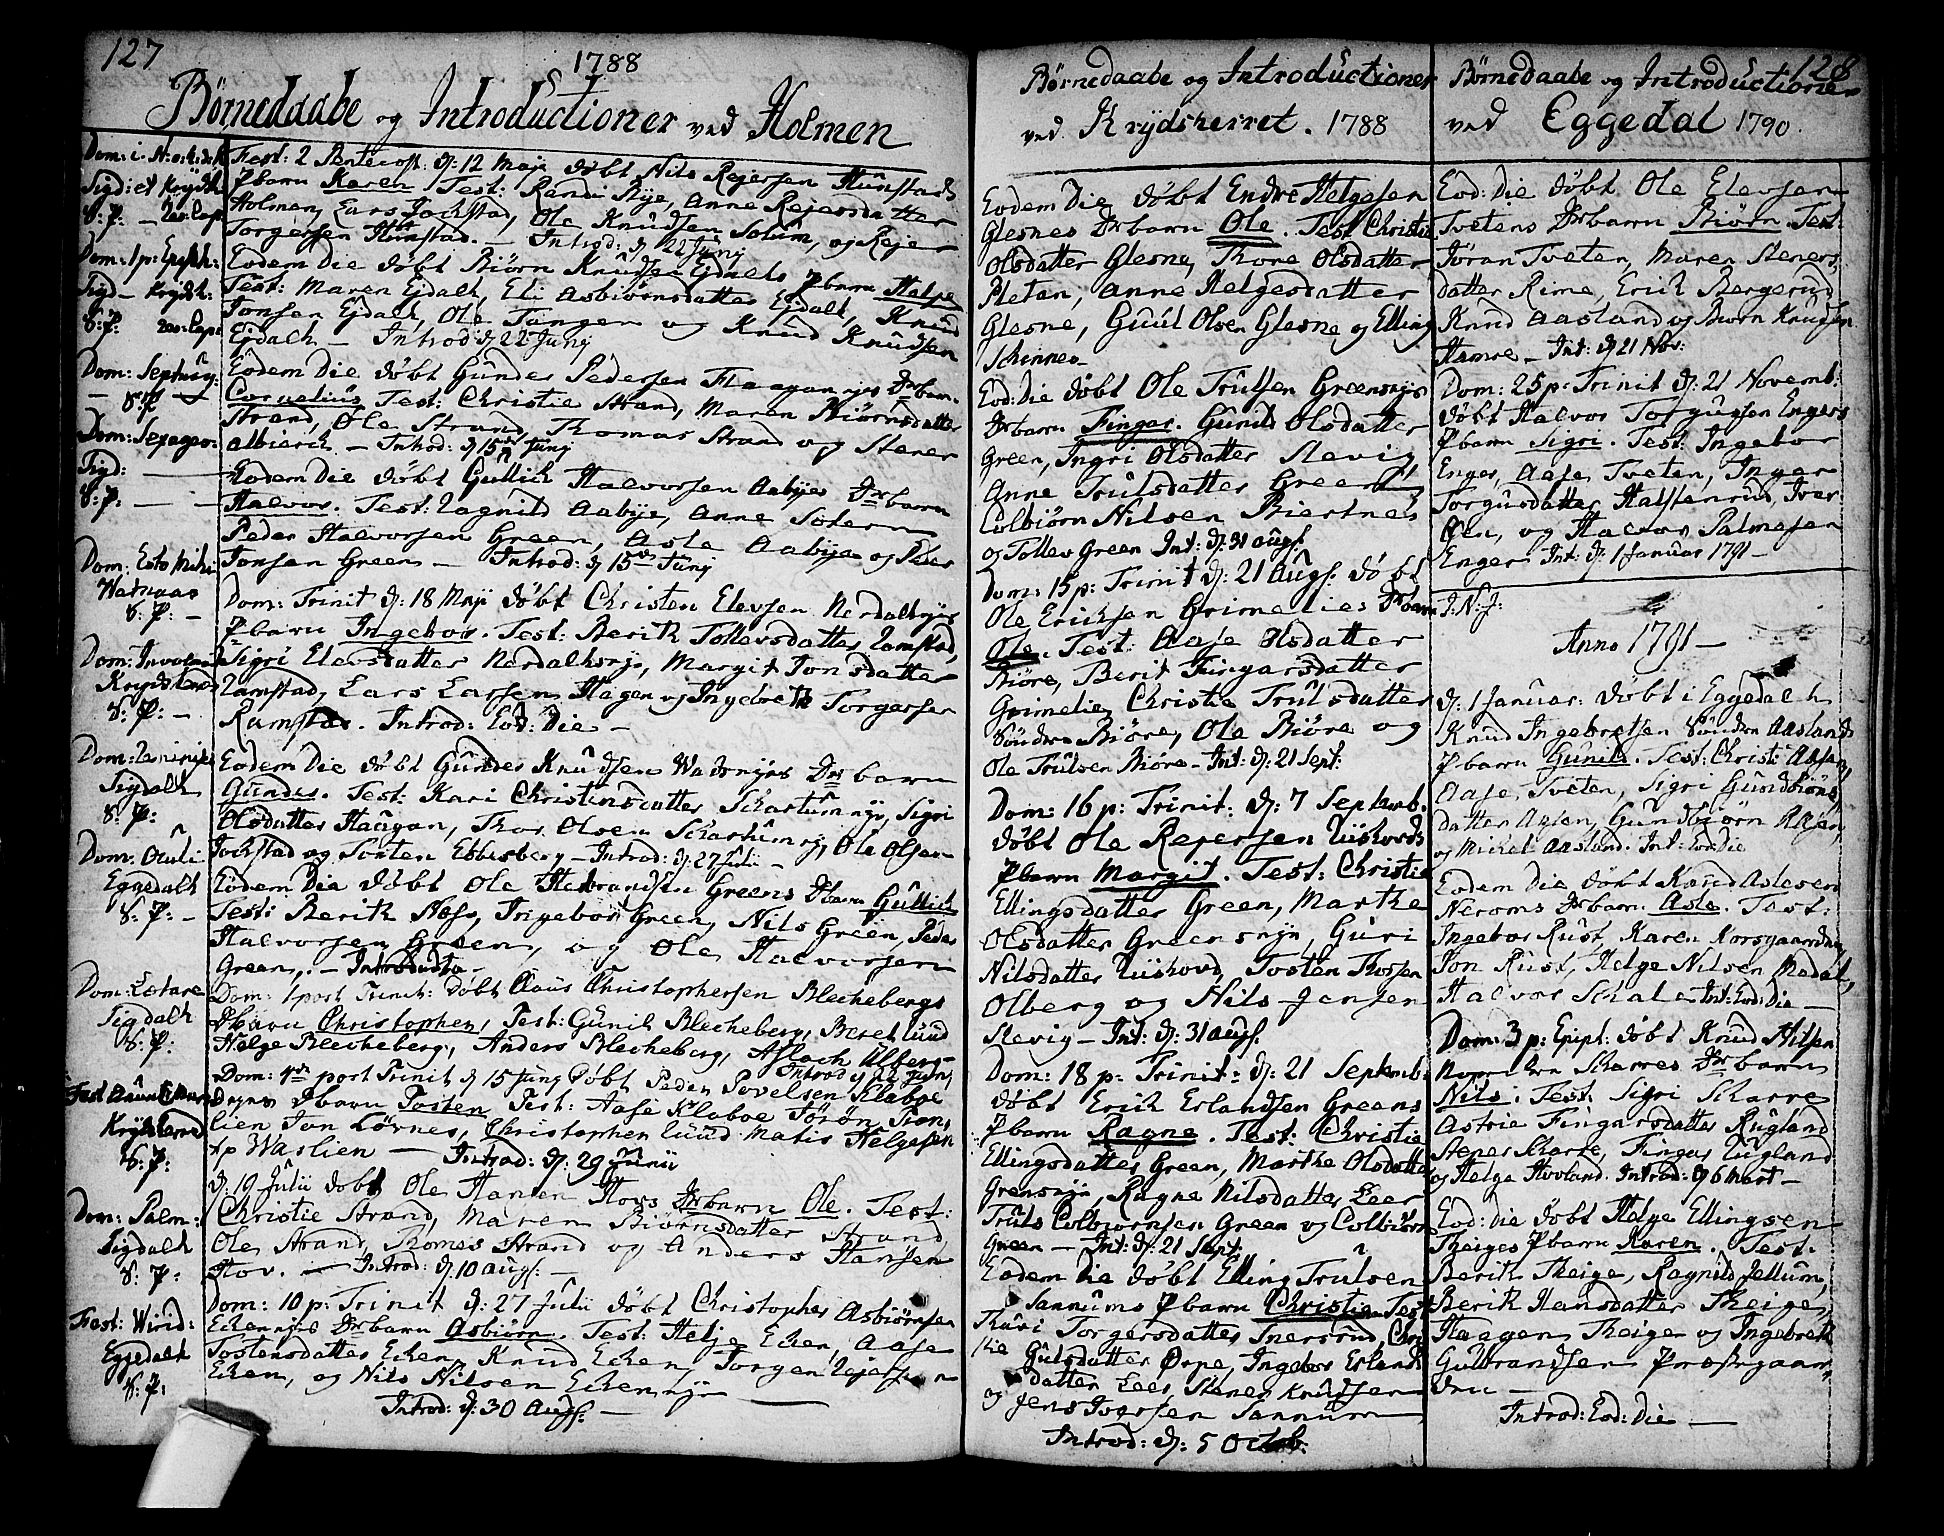 127
1788
Børnedaabe og Introductioner ved Holmen
Dom: i
Sigd: et Krydsh
S: P:
Dom: 1 p: Epiph:
Sigd – Krydsh:
S: P:
Dom: Septuag:
S: P
Dom: Sexages:
Sigd:
S: P: —
Dom: Esto Mihi
Watnaas
S: P: —
Dom: Invocavit
S: P: —
Dom: Reminis
Sigdalh
S: P:
Dom: Oculi
Eggedalh
S: P: —
Dom: Lætare
Sigdalh
S: P:
S: P:
Dom: Palm:
Sigdalh
S: P:
Fest: Wisid:
Eggedalh
S: P:
Fest: 2 Pentecost. d: 12 Maji døbt Nils Rejersen Hunstads
Pbarn Karen Test: Randi Rye, Anne Rejersdatter
Holmen, Lars Jockstad, Ole Knudsen Solum, og Rejer
Torgersen Hunstad. — Introd: d 22 Junij
Eodem Die døbt Biørn Knudsen Ejdalhs Pbarn Helge
Test: Maren Ejdalh, Eli Asbiørnsdatter Ejdalh, Knud
Jonsen Ejdalh, Ole Tangen og Knud Knudsen
Ejdalh — Introd: d 22 Junij
Eodem Die døbt Gunder Pedersen Haaganejes Drbarn
Cornelius Test: Christie Strand, Maren Biørnsdatter
Strand, Ole Strand, Thomas Strand og Stener
Albierk — Introd: d 15de Junij
Eodem Die døbt Gullich Halvorsen Aabyes Drbarn
Halvor. Test: Ragnild Aabye, Anne Solem
Peder Halvorsen Green, Asle Aabye og Peder
Jonsen Green — Introd: d 15de Junij
Dom: Trinit d: 18 Maji døbt Christen Elevsen Nerdalhejes
Pbarn Ingebor. Test: Berith Tollevsdatter Ramstad,
Sigri Elevsdatter Nerdalhseje, Margit Jonsdatter
Ramstad, Lars Larsen Hagen og Ingebreth Torgersen
Ramstad. Introd: Eod: Die —
Eodem Die døbt Gunder Knudsen Wadsejes Drbarn
Gunder. Test: Kari Christensdatter Schartumeje, Sigri
Olsdatter Haugan, Thor Olsen Schartumeje, Ole Olsen
Jockstad og Tosten Ebbesberg — Introd: d: 27 Julii —
Eodem Die døbt Ole Helbrandsen Greens Drbarn Gullich
Test: Berith Næss, Ingebor Green, Nils Green, Peder
Halvorsen Green, og Ole Halvorsen
Green. — Introducta —
Dom: 1 post Trinit: døbt Claus Christophersen Blechebergs
Pbarn Christopher, Test: Gunil Blecheberg, Beret Lund
Helge Blecheberg, Anders Blecheberg, Aslach Ulberg —
Introd d 22 Junij
Dom: 4de post Trinit d 15 Junij Døbt Peder Povelsen Klabpe
Pbarn Tosten Test: Aase Klaboe Jørøn Tion
lien Jon Løvnes, Christopher Lund Matis Helgesen
Waslien — Introd: d: 29 Junii
d: 19 Julii døbt Ole Hansen Hovs Drbarn Ole. Test:
Christie Strand, Maren Biørnsdatter Strand
Ole Strand, Thomes Strand og Anders Hansen
Hov. — Introd: d 10 Augs: —
Dom: 10 p: Trinit d: 27 Julii døbt Christopher Asbiørnsen
Echerejes Drbarn Asbiørn. Test: Helje Echern, Aase
Tostensdatter Echern, Knud Echern, Torger Rejersen
Echern, og Nils Nilsen Echerneje —
Introd: d: 30 Augs: —
Børnedaabe og Introductioner
ved Krydsherret. 1788
Eodem Die døbt Endre Helgesen
Glesnes Drbarn Ole. Test Christie
Olsdatter Glesne, Thore Olsdatter
Pleten, Anne Helgesdatter
Glesne, Guul Olsen Glesne og Elling
Schinnes
Eod: Die døbt Ole Trulsen Greensejes
Drbarn Fingar. Gunild Olsdatter
Green, Ingri Olsdatter Slevig
Anne Trulsdatter Green
Colbiørn Nilsen Biertnes
og Tollev Green Int: d: 31 Augs:
Dom: 15 p: Trinit d: 21 Augs: døbt
Ole Erichsen Grimelies Drbarn
Ole. Test: Aase Olsdatter
Biøre, Berit Fingarsdatter
Grimelie Christie Trulsdatter
Søndre Biøre, Ole Biøre og
Ole Trulsen Biøre — Int: d: 21 Sept:
Dom: 16 p: Trinit: d: 7 Septemb:
døbt Ole Rejersen Riishovds
Pbarn Margit. Test: Christie
Ellingsdatter Green, Marthe
Olsdatter Greenseje, Guri
Nilsdatter Riishovd, Tosten Thorsen
Olberg og Nils Jensen
Slevig — Int: d: 31 Augs:
Dom: 18 p: Trinit: d: 21 Septemb:
døbt Erich Erlandsen Greens
Pbarn Ragne. Test: Christie
Ellingsdatter Green, Marthe Olsdatter
Grenseje, Ragne Nilsdatter Leer
Truls Colbiørnsen Green og Colbiørn
Green — Int: d: 21 Sept:
Eodem Die døbt Elling Trulsen
Sannums Pbarn Christie. Test
Thuri Torgersdatter Snersrud, Chri
stie Gulsdatter Ørpe, Ingebor Erlands
datter Leer, Stener Knudsen
og Jens Iversen Sannum
Introd: d: 5 Octob:
Børnedaabe og Introductioner
128
ved Eggedal 1790.
Eod: Die døbt Ole Elevsen
Tvetens Drbarn Biørn Test:
Jøran Tveten, Maren Steners
datter Rime, Erich Bergerud
Knud Aasland og Biørn Knudsen
Hamre — Int: d 21 Nov:
Dom: 25 p: Trinit d: 21 Novemb:
døbt Halvor Torgusen Engers
Pbarn Sigri. Test: Ingebor
Enger, Aase Tveten, Inger
Torgusdatter Halstenrud, Iver
Øen, og Halvor Palmesen
Enger Int: d: 1 Januar 1791 —
I: N: J:
Anno 1791 —
d: 1 Januar: døbt i Eggedalh
Knud Ingebretsen Søndre Aaslands
Pbarn Gunild. Test: Christi Aasen,
Aase Tveten, Sigri Gundbiørns
datter Aasen, Gundbiørn Aasen,
og Michel Aasland. Int: Eod: Die
Eodem Die døbt Knud Aslesen
Neroms Drbarn. Asle. Test:
Ingebor Rust, Karen Korsgaarden,
Jon Rust, Helge Nilsen Medal,
Halvor Schale Int: Eod: Die —
Dom: 3 p: Epiph: døbt Knud Nilsen
Scharres Drbarn
Nils. Test: Sigri Scharre
Astrie Fingarsdatter Rugland
Stener Scharre, Fingar Rugland
og Helge Hovland. Introd: d 6 Mart —
Eod: Die døbt Helge Ellingsen
Theiges Pbarn Karen. Test:
Berith Theige, Ragnild Jellum,
Berith Hansdatter Theige,
Haagen Theige og Ingebreth
Gulbrandsen Præstegaar
den —
Introd: Eod: Die —